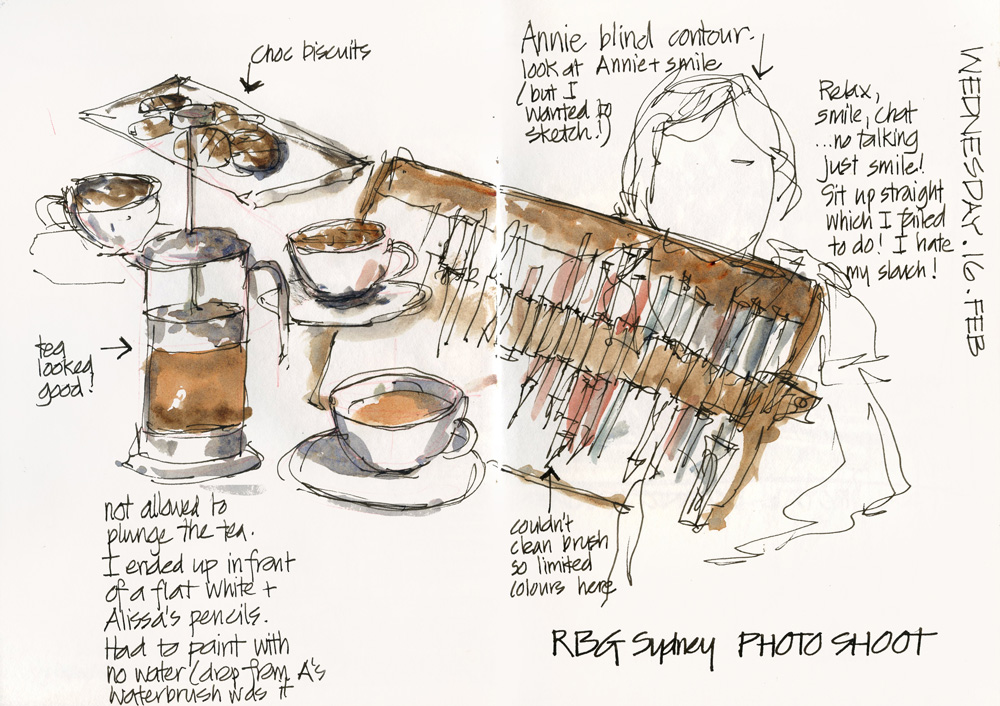 choc biscuits
Annie blind contour.
look at Annie + smile
(but I
wanted to
sketch!)
Relax,
smile, chat
...no talking
just smile!
Sit up straight
which I failed
to do! I hate
my slouch!
WEDNESDAY. 16. FEB
tea
looked
good!
not allowed to
plunge the tea.
I ended up in front
of a flat white +
Alissa's pencils.
Had to paint with
no water (drop from A's
waterbrush was it
couldn't
clean brush
so limited
colours here
RBG Sydney PHOTO SHOOT